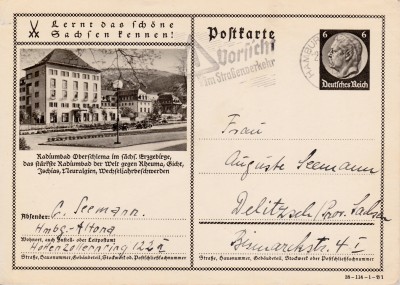 Lernt das schöne
Sachsen kennen!
Radiumbad Oberschlema im sächs. Erzgebirge,
das stärkste Radiumbad der Welt gegen Rheuma, Gicht,
Ischias, Neuralgien, Wechseljahrbeschwerden
Absender: C. Seemann.
Hmbg.-Altona
Wohnort, auch Zustell- oder Leitpostamt
Hohenzollernring 122 II
Straße, Hausnummer, Gebäudeteil, Stockwerk od. Postschließfachnummer
Postkarte
Vorsicht
im Straßenverkehr
HAMBURG
6 6
Deutsches Reich
Frau
Auguste Seemann
Delitzsch/Prov. Sachsen
Bismarckstr. 4 I
Straße, Hausnummer, Gebäudeteil, Stockwerk od. Postschließfachnummer